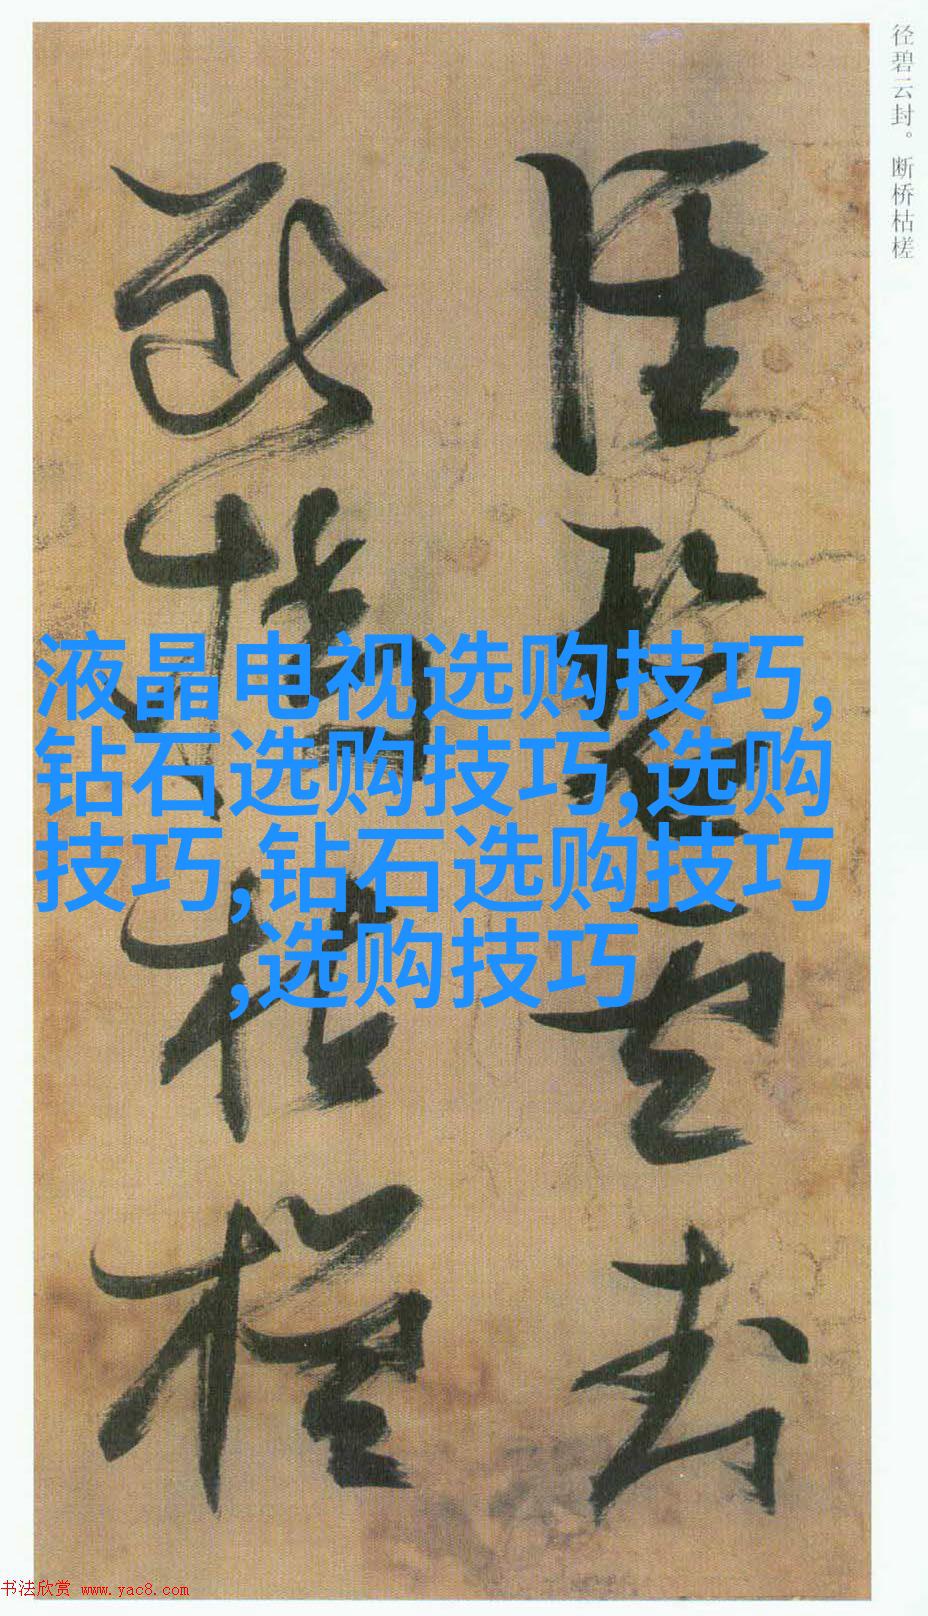 径碧云封。断桥枯槎
径碧云封
断桥枯槎
液晶电视选购技巧,
钻石选购技巧,选购
技巧,钻石选购技巧
,选购技巧
书法欣赏 www.yac8.com